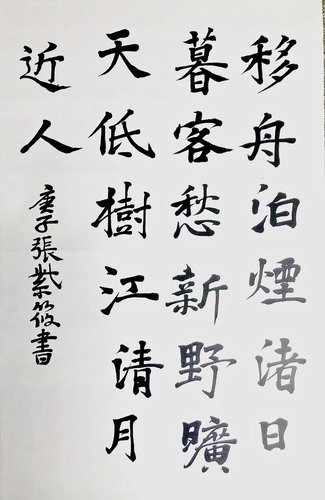 移舟泊煙渚日
暮客愁新野曠
天低樹江清月
近人
庚子張紫筱書